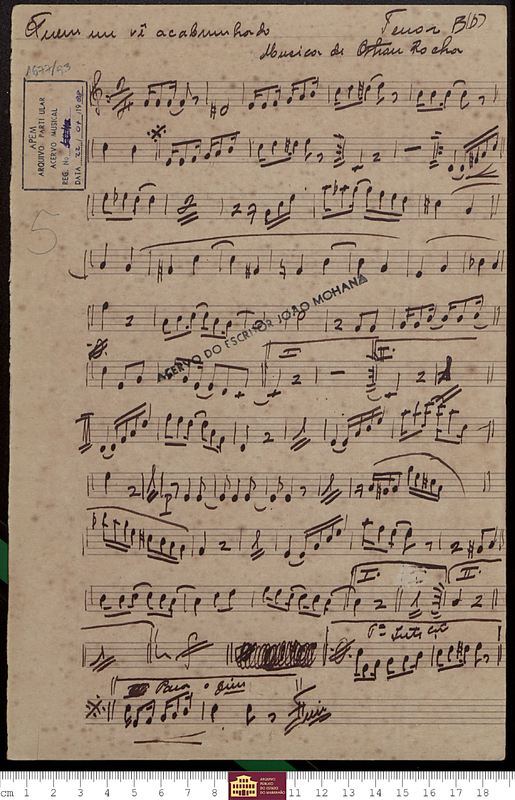 Quem me vê acabrunhado
Tenor B(b)
Musica de Othon Rocha
1677/93
APEM
ARQUIVO PARTICULAR
ACERVO MUSICAL
REG. No.
DATA 22/07/19
5
ACERVO DO ESCRITOR JOÃO MOHANA
I II
I. II.
Para o Fim
Fim
cm 1 2 3 4 5 6 7 8 ARQUIVO PÚBLICO DO ESTADO DO MARANHÃO 11 12 13 14 15 16 17 18